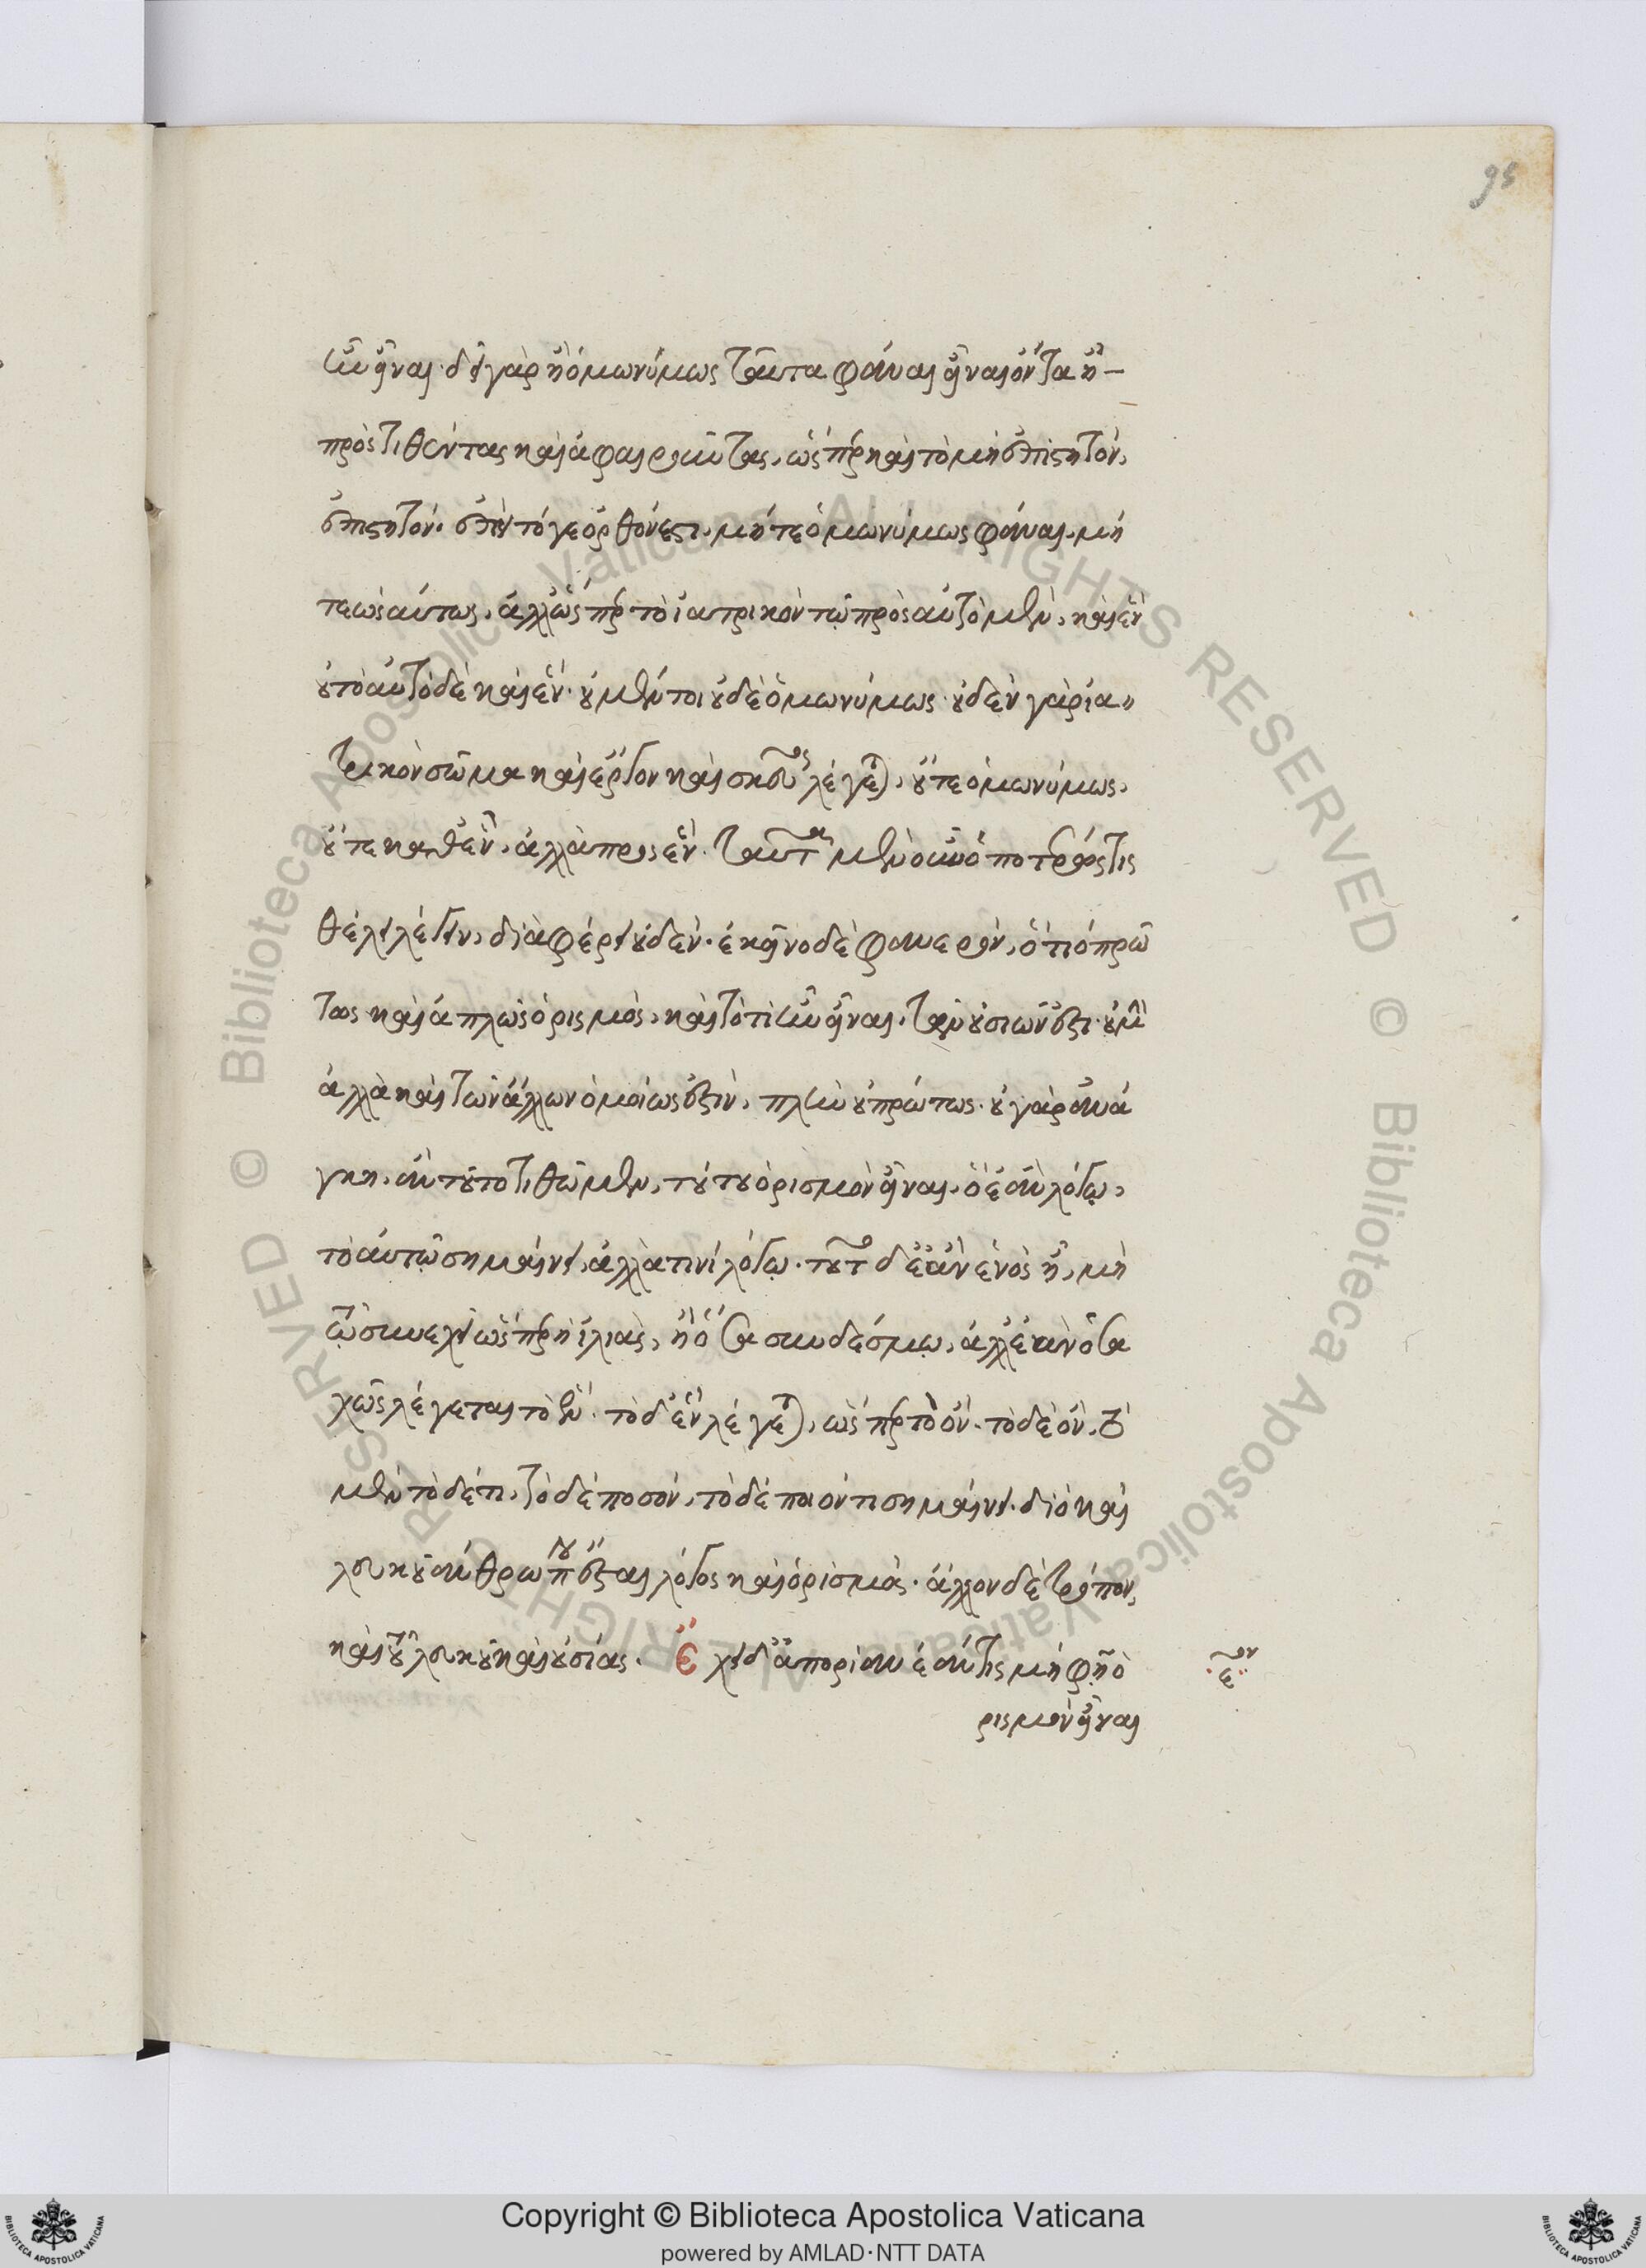 95
ἦν εἶναι· δεῖ γὰρ ἢ ὁμωνύμως ταῦτα φάναι εἶναι ὄντα ἢ
προστιθέντας καὶ ἀφαιροῦντας, ὥσπερ καὶ τὸ μὴ ἐπιστητὸν,
ἐπιστητόν· ἐπεὶ τό γε ὀρθόν ἐστι, μήτε ὁμωνύμως φάναι, μή
τε ὡσαύτως, ἀλλ' ὥσπερ τὸ ἰατρικὸν τῷ πρὸς αὐτὸ μὲν, καὶ ἓν
οὐ τὸ αὐτὸ δὲ καὶ ἕν· οὐ μέντοι οὐδὲ ὁμωνύμως· οὐδὲν γὰρ ἰα
τρικὸν σῶμα καὶ ἔργον καὶ σκεῦος λέγεται, οὔτε ὁμωνύμως,
οὔτε καθ' ἓν, ἀλλὰ πρὸς ἕν. ταῦτα μὲν οὖν ὁποτέρως τις
θέλει λέγειν, διαφέρει οὐδέν· ἐκεῖνο δὲ φανερὸν, ὅτι ὁ πρώ
τως καὶ ἁπλῶς ὁρισμὸς, καὶ τὸ τί ἦν εἶναι, τῶν οὐσιῶν ἐστι· οὐ μὴν
ἀλλὰ καὶ τῶν ἄλλων ὁμοίως ἐστὶν, πλὴν οὐ πρώτως· οὐ γὰρ ἀνά
γκη, ἂν τοῦτο τιθῶμεν, τούτου ὁρισμὸν εἶναι, ὃ ἐὰν λόγῳ,
τὸ αὐτῷ σημαίνει, ἀλλά τινι λόγῳ· τοῦτο δὲ ἐὰν ἑνὸς ᾖ, μὴ
τῷ συνεχεῖ ὥσπερ ἡ ἰλιὰς, ἢ ὅσα συνδέσμῳ, ἀλλ' ἐὰν ὅσα
χῶς λέγεται τὸ ἕν· τὸ δ' ἓν λέγεται, ὥσπερ τὸ ὄν· τὸ δὲ ὂν, τὸ
μὲν τόδε τι, τὸ δὲ ποσόν, τὸ δὲ ποιόν τι σημαίνει· διὸ καὶ
λευκοῦ ἀνθρώπου ἔσται λόγος καὶ ὁρισμός· ἄλλον δὲ τρόπον,
καὶ τοῦ λευκοῦ καὶ οὐσίας. Ἔχει δ' ἀπορίαν ἐάν τις μὴ φῇ ὁ
ρισμὸν εἶναι